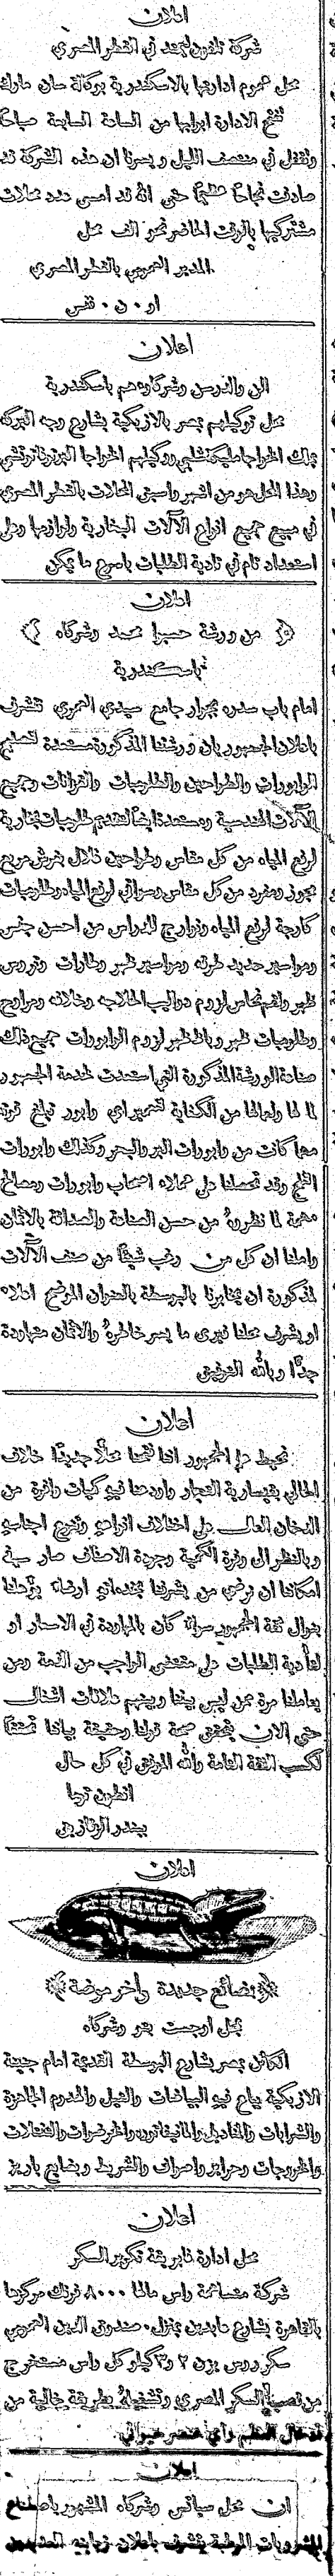 اعلان
شركة تلفون ليمتد في القطر المصري
محل عموم ادارتها بالاسكندرية بوكالة سان مارك
تفتح الادارة ابوابها من الساعة السابعة صباحاً
وتقفل في منتصف الليل ويسرنا ان هذه الشركة قد
صادفت نجاحاً عظيماً حتى انه قد امسى عدد محلات
مشتركيها بالوقت الحاضر نحو الف محل
المدير العمومي بالقطر المصري
اعلان
الن والدرسن وشركاؤهم باسكندرية
محل توكيلهم بمصر بالازبكية بشارع وجه البركه
بملك الخواجا ووكيلهم الخواجا
وهذا المحل هو من اشهر واسبق المحلات بالقطر المصري
في مبيع جميع انواع الآلات البخارية ولوازمها وعلى
استعداد تام في تادية الطلبات باسرع ما يمكن
اعلان
من ورشة محمد وشركاه
باسكندرية
امام باب سدره بجوار جامع سيدي العمري تتشرف
باعلان الجمهور بان ورشتنا المذكورة مستعدة لتصليح
الوابورات والطواحين والطلومبات والقزانات وجميع
الآلات الهندسية ومستعدة ايضاً لتقديم طلومبات بخارية
لرفع المياه من كل مقاس وطواحين غلال بفرش مربع
مجوز ومفرد من كل مقاس وسواقي لرفع المياه وطلومبات
كارجة لرفع المياه ونوارج للدراس من احسن جنس
ومواسير حديد طرقه ومواسير ظهر وطارات وتروس
ظهر ولقم نحاس لزوم دواليب الحلاجه وخلافه ومراوح
وطلومبات ظهر ظهر لزوم الوابورات جميع ذلك
صناعة الورشة المذكورة التي استعدت لخدمة الجمهور
لما لها ولعمالها من الكفاية لتعمير اي وابور تبلغ قوته
مهما كانت من وابورات البر والبحر وكذلك وابورات
الثلج وقد تحصلنا على عملاء اصحاب وابورات ومصالح
مهمة لما نظروهُ من حسن الصناعة والصداقة بالاثمان
واملنا ان كل من رغب شيئاً من صنف الآلات
المذكورة ان يخابرنا بالبوسطة بالعنوان الموضح اعلاه
او يشرف محلنا فيرى ما يسر خاطرهُ والاثمان متهاودة
جدًّا وبالله التوفيق
اعلان
نحيط علم الجمهور اننا فتحنا محلًّا جديدًا خلاف
الحالي بقيسارية التجار واوردنا فيهِ كميات وافرة من
الدخان العال على اختلاف انواعهِ وتنوع اجناسهِ
وبالنظر الى وفرة الكمية وجودة الاصناف صار في
امكاننا ان نرضي من يشرفنا
بنوال ثقة الجمهور سواءٌ كان بالمهاودة في الاسعار او
لتأدية الطلبات على مقتضى الواجب من الذمة ومن
يعاملنا مرة ممن ليس بيننا وبينهم علاقات اشغال
حتى الان يتحقق صحة قولنا وحقيقة بياننا
لكسب الثقة العامة والله الموفق في كل حال
انطون
ببندر الزقازيق
اعلان
بضائع جديدة واخر موضة
بمحل اوجست وشركاه
الكائن بمصر بشارع البوسطة القديمة امام جنينة
الازبكية يباع فيهِ البياضات والتيل والهدوم الجاهزة
والشرابات والمناديل والمانيفاتوره والخرضوات
والخروجات وحراير واصواف والشريط وبضايع باريز
اعلان
محل ادارة فابريقة تكرير السكر
شركة مساهمة راس مالها ٨٠٠٠ فرنك مركزها
بالقاهرة بشارع عابدين بمنزل صندوق الدين العمومي
سكر روس بزن ٢ و٣ كيلو كل راس مستخرج
من قصب السكر المصري وتشغيلهُ بطريقة خالية من
ادخال العظم واي عنصر حيواني
اعلان
ان محل وشركاه المشهور باصطناع
المشروبات الروحية يتشرف باعلان زباينه